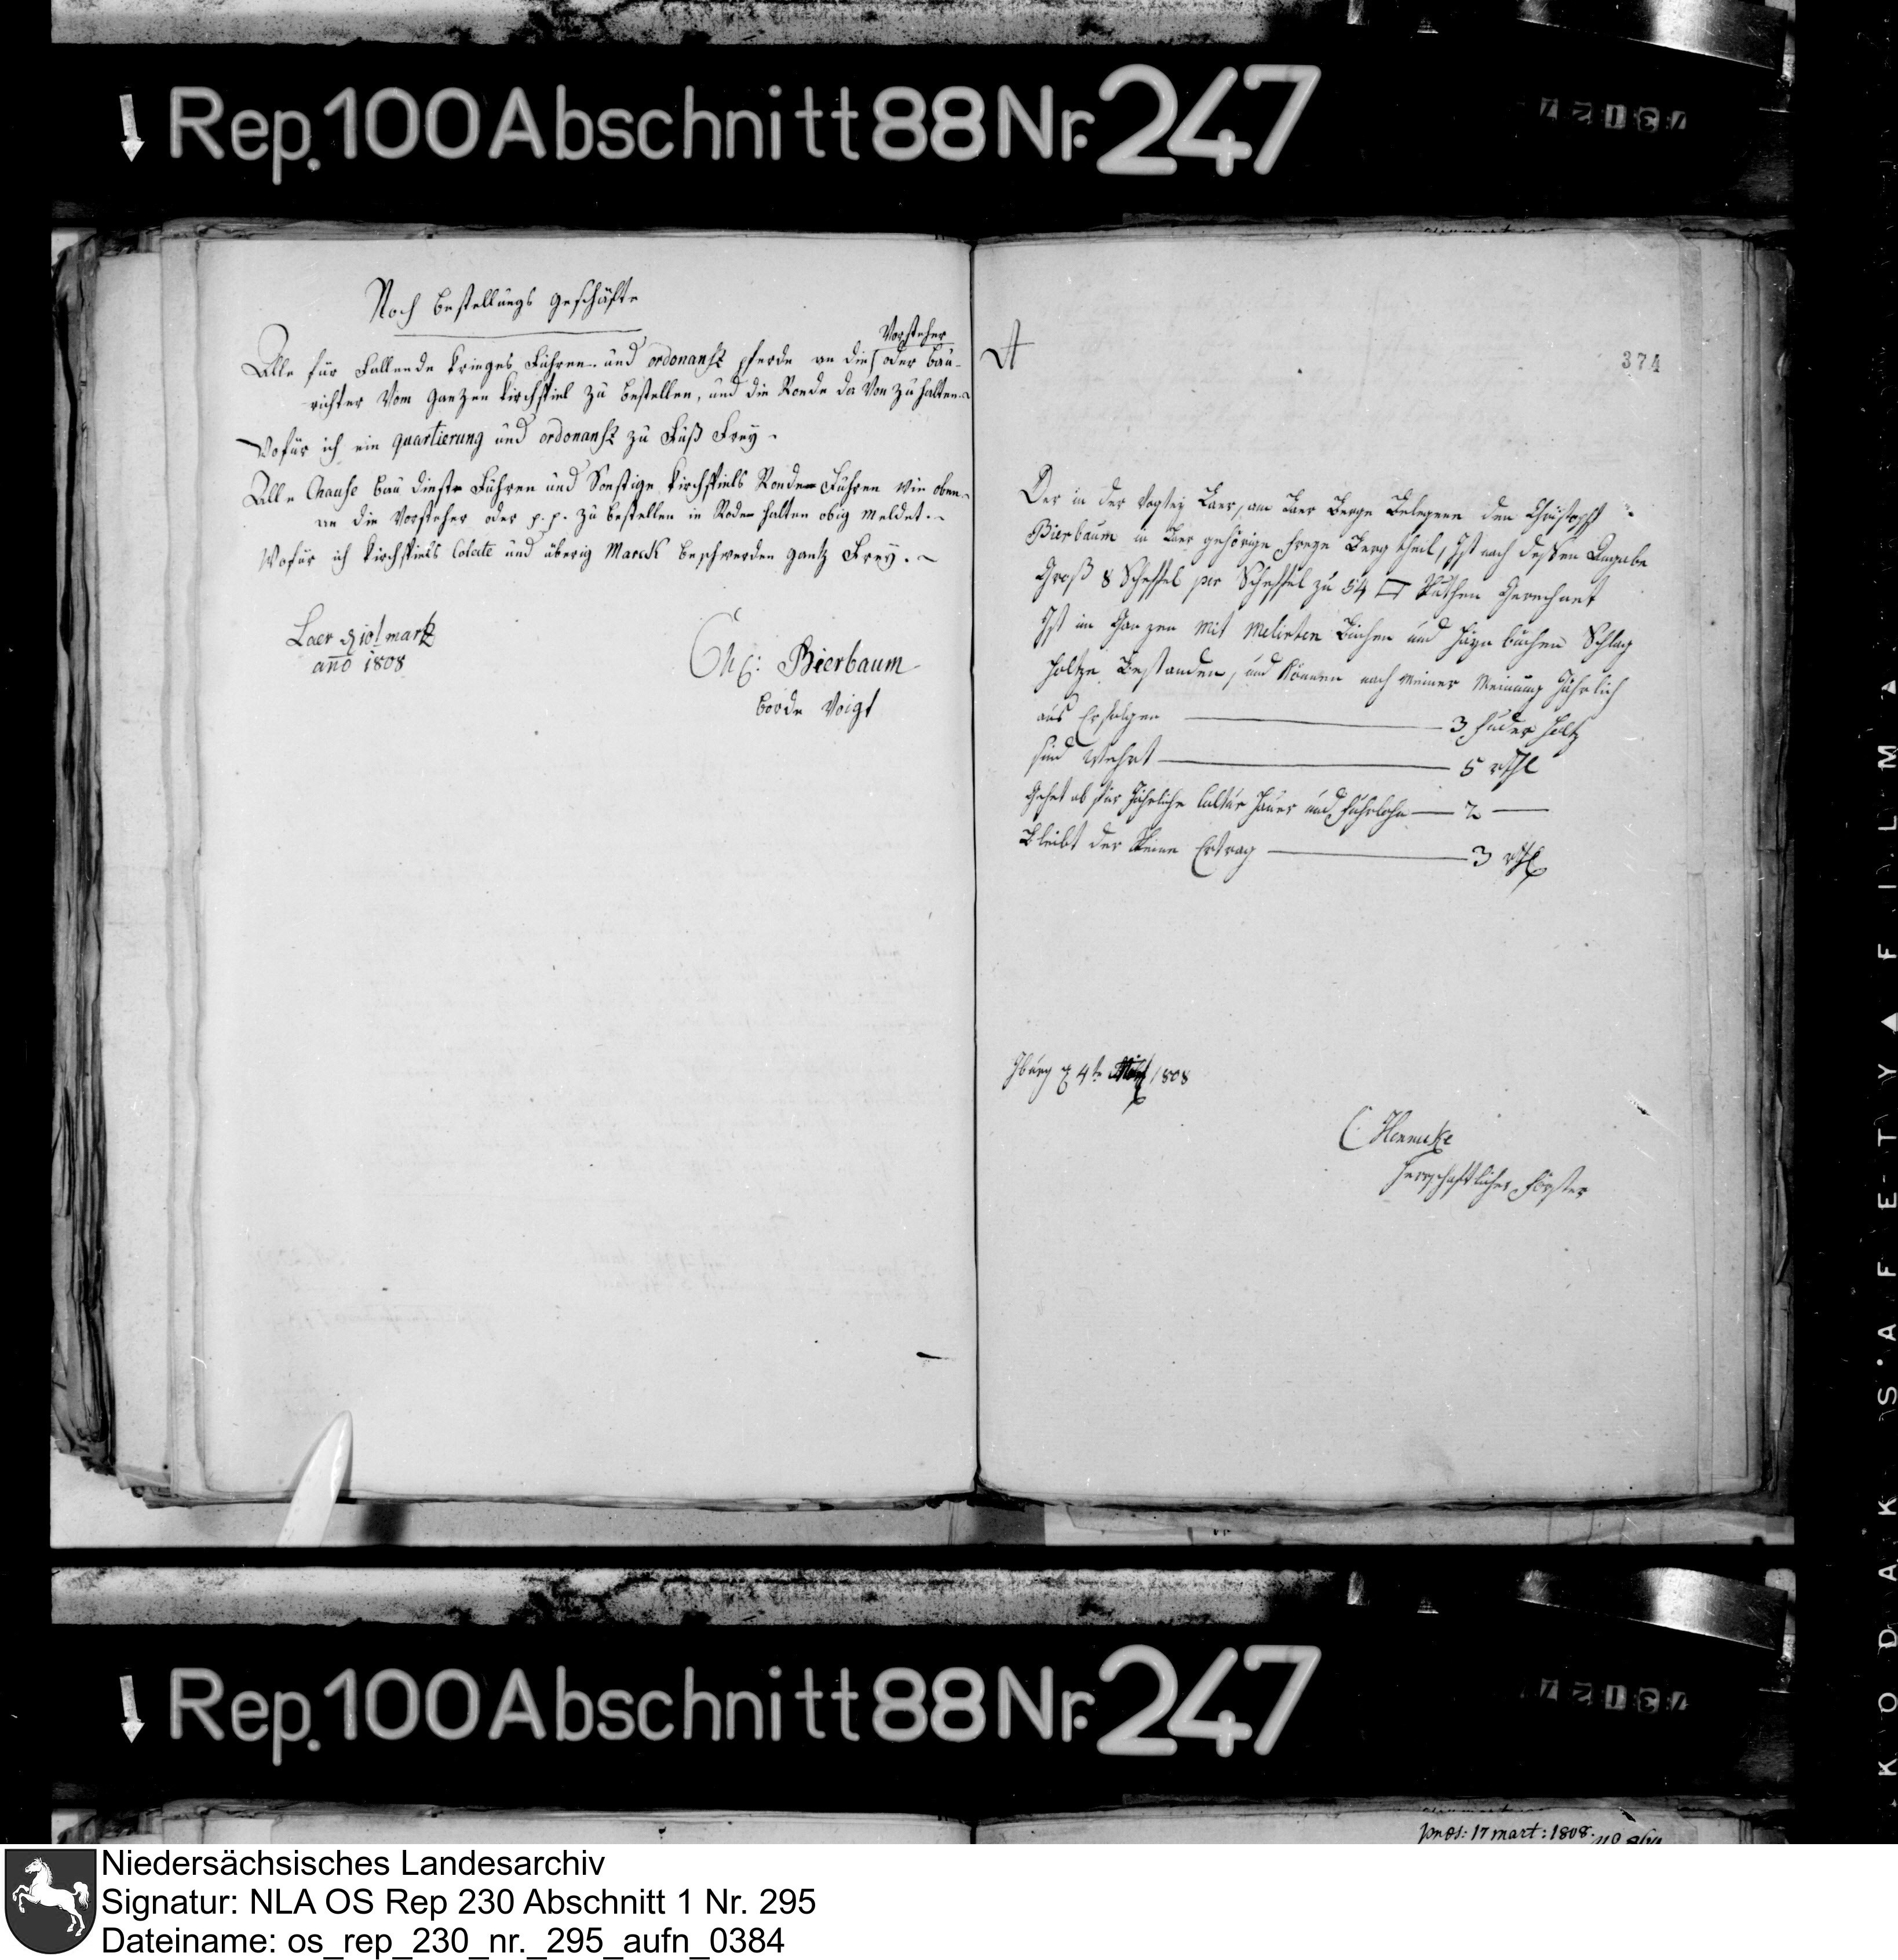 Rep. 100 Abschnitt 88 Nr. 247
Noch bestellungs geschäfte
Vorsteher
Alle für fallende krieges Fuhren und ordonantz pferde an die oder bau-
richter Vom ganzen kirchspiel zu bestellen, und die Ronde da Von zu halten
Wofür ich ein quartierung und ordonantz zu Fuß Frey.
Alle Chause bau dienste Fuhren und Sonstige kirchspiels Ronde Fuhren wie oben
an die Vorsteher oder p. p. zu bestellen in Rode halten obig meldet.
Wofür ich kirchspiels Colecte und übrig Marck beschwerden gantz Frey.
Laer d 10t martz
anno 1808
Bierbaum
Voigt
A
374
Der in der Vogtey Laer, am Laer Berge Belegene den Christoph
Bierbaum in Laer gehörige freye Berg theil, Ist nach dessen Angabe
Groß 8 Scheffel per Scheffel zu 54 □ Ruthen Gerechnet
Ist im Ganzen mit Melirten Büchen und Hayn buchen Schlag
Holtze Bestanden, und können nach meiner Meinung Jährlich
aus Erfolgen 3 fuder Holtz
sind Wehrt 5 rthl
Gehet ab für Jährliche Cultur Hauer und fuhrlohn 2
Bleibt der Reine Ertrag 3 rthl
Iburg d 4te 1808
C Hennecke
Herrschaftlicher Förster
Rep. 100 Abschnitt 88 Nr. 247
17 mart: 1808.
KODAK SAFETY FILM
Niedersächsisches Landesarchiv
Signatur: NLA OS Rep 230 Abschnitt 1 Nr. 295
Dateiname: os_rep_230_nr._295_aufn_0384